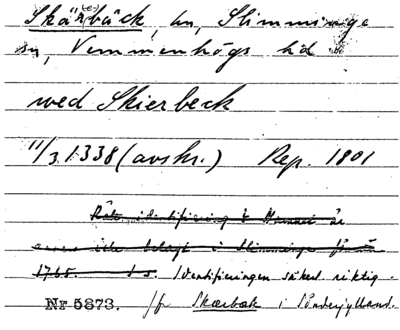 Skär(e)bäck, hn, Slimminge
sn, Vemmenhögs hd
wed Skierbeck
11/3 1338 (avskr.) Rep. 1801
Rätt identifiering? Namnet är
annars icke belagt i Slimminge förrän
1765. Identifieringen säkert riktig.
Nr 5873. jfr Skærbæk i Sönderjylland.